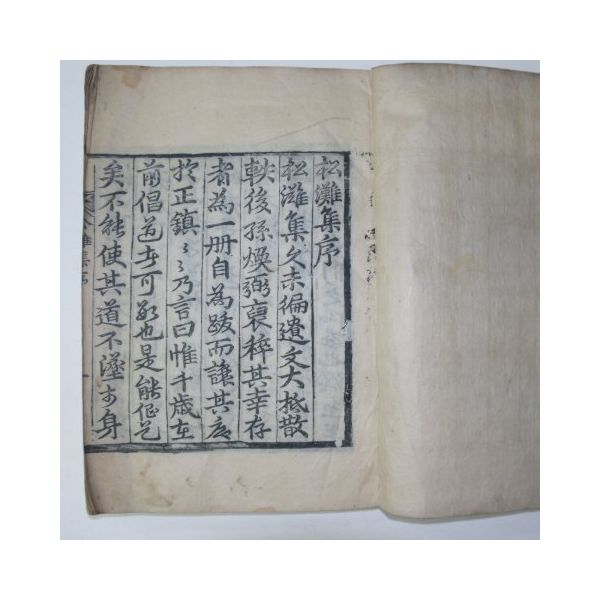 松灘集序
松灘集久未徧遺文大抵散
軼後孫煥弼裒稡其幸存
者為一冊自為跋而讓其序
於正鎮〻〻乃言曰惟千歲在
前倡道者可必也是能
矣不能使其道不墜于身